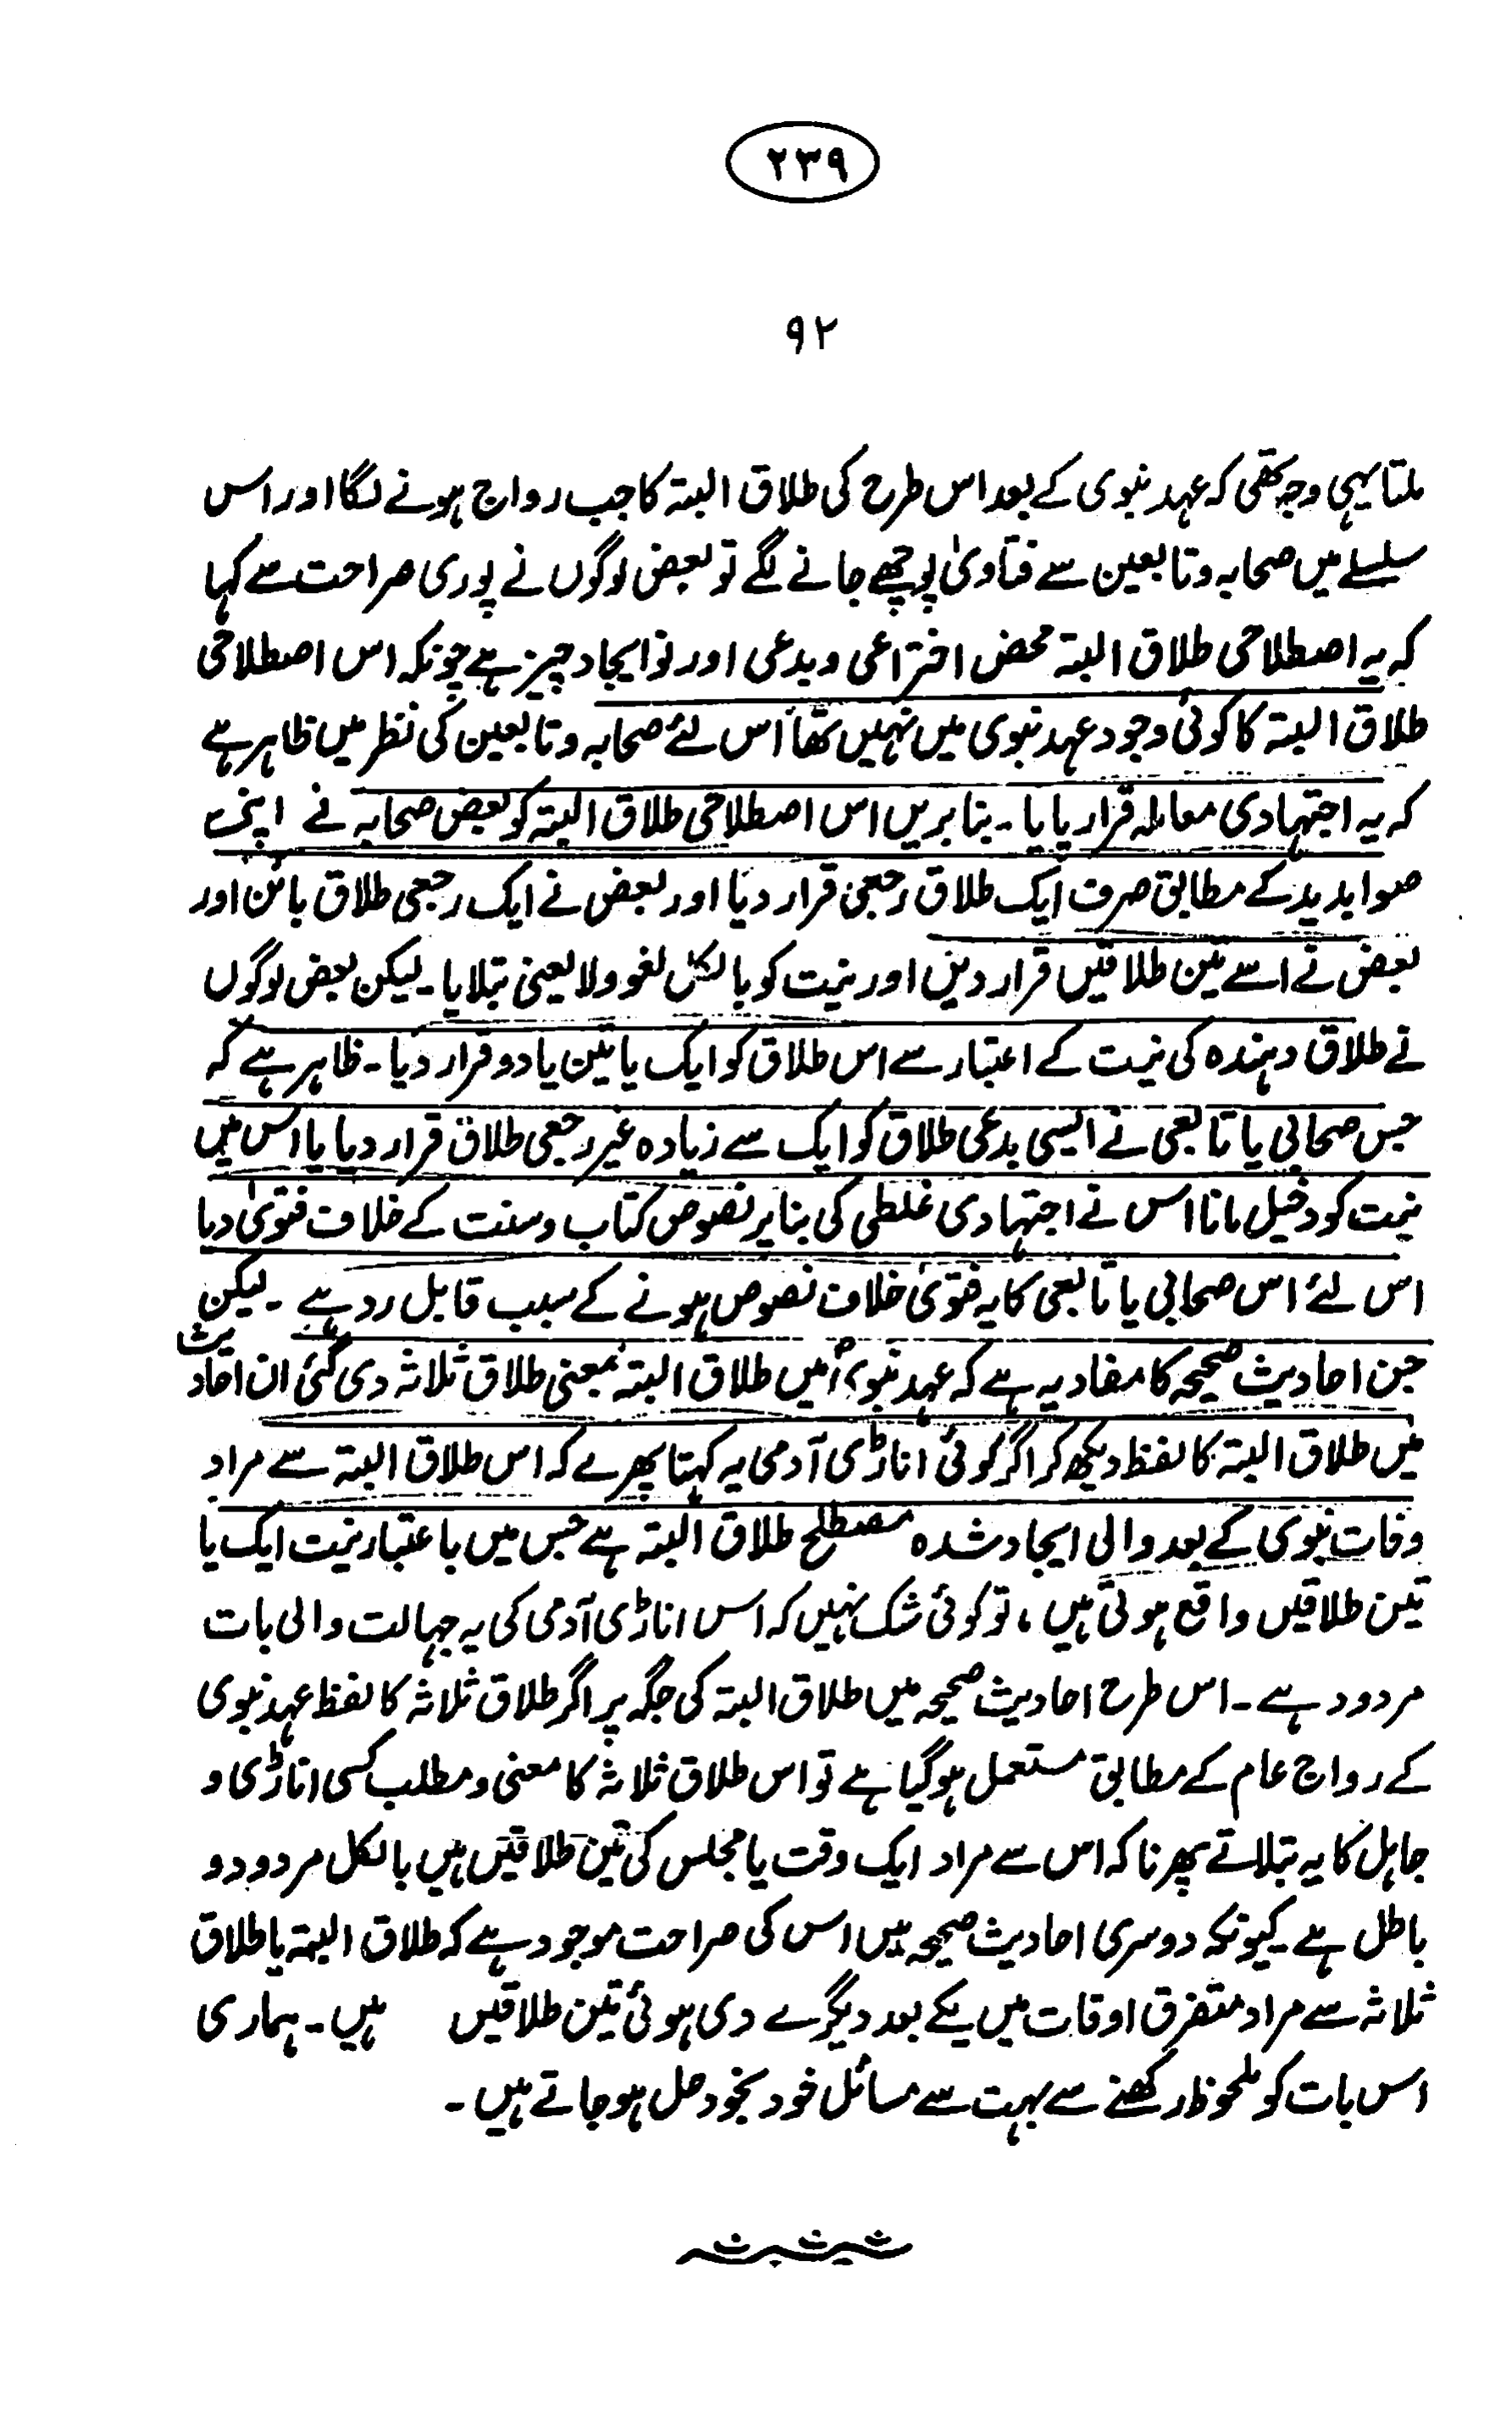 ۲۳۹
۹۲
ملتا یہی وجہ تھی کہ عہد نبوی کے بعد اس طرح کی طلاق البتہ کا جب رواج ہونے لگا اور اس
سلسلے میں صحابہ و تابعین سے فتاویٰ پوچھے جانے لگے تو بعض لوگوں نے پوری صراحت سے کہا
کہ یہ اصطلاحی طلاق البتہ محض اختراعی و بدعی اور نو ایجاد چیز ہے چونکہ اس اصطلاحی
طلاق البتہ کا کوئی وجود عہد نبوی میں نہیں تھا اس لئے صحابہ و تابعین کی نظر میں ظاہر ہے
کہ یہ اجتہادی معاملہ قرار پایا ۔ بنا بریں اس اصطلاحی طلاق البتہ کو بعض صحابہ نے اپنی
صوابدید کے مطابق صرف ایک طلاق رجعی قرار دیا اور بعض نے ایک رجعی طلاق بائن اور
بعض نے اسے تین طلاقیں قرار دیں اور نیت کو بالکل لغو و لا یعنی بتلایا ۔ لیکن بعض لوگوں
نے طلاق دہندہ کی نیت کے اعتبار سے اس طلاق کو ایک یا تین یا دو قرار دیا ۔ ظاہر ہے کہ
جس صحابی یا تابعی نے ایسی بدعی طلاق کو ایک سے زیادہ غیر رجعی طلاق قرار دیا یا اس میں
نیت کو دخیل مانا اس نے اجتہادی غلطی کی بنا پر نصوص کتاب و سنت کے خلاف فتویٰ دیا
اس لئے اس صحابی یا تابعی کا یہ فتویٰ خلاف نصوص ہونے کے سبب قابل رد ہے ۔ لیکن
جن احادیث صحیحہ کا مفاد یہ ہے کہ عہد نبوی میں طلاق البتہ بمعنی طلاق ثلاثہ دی گئی ان احادیث
میں طلاق البتہ کا لفظ دیکھ کر اگر کوئی اناڑی آدمی یہ کہتا پھرے کہ اس طلاق البتہ سے مراد
وفات نبوی کے بعد والی ایجاد شدہ مصطلح طلاق البتہ ہے جس میں باعتبار نیت ایک یا
تین طلاقیں واقع ہوتی ہیں ، تو کوئی شک نہیں کہ اس اناڑی آدمی کی یہ جہالت والی بات
مردود ہے ۔ اس طرح احادیث صحیحہ میں طلاق البتہ کی جگہ پر اگر طلاق ثلاثہ کا لفظ عہد نبوی
کے رواج عام کے مطابق مستعمل ہو گیا ہے تو اس طلاق ثلاثہ کا معنی و مطلب کسی اناڑی و
جاہل کا یہ بتلاتے پھرنا کہ اس سے مراد ایک وقت یا مجلس کی تین طلاقیں ہیں بالکل مردود و
باطل ہے ۔ کیونکہ دوسری احادیث صحیحہ میں اس کی صراحت موجود ہے کہ طلاق البتہ یا طلاق
ثلاثہ سے مراد متفرق اوقات میں یکے بعد دیگرے دی ہوئی تین طلاقیں ہیں ۔ ہماری
اس بات کو ملحوظ رکھنے سے بہت سے مسائل خود بخود حل ہو جاتے ہیں ۔